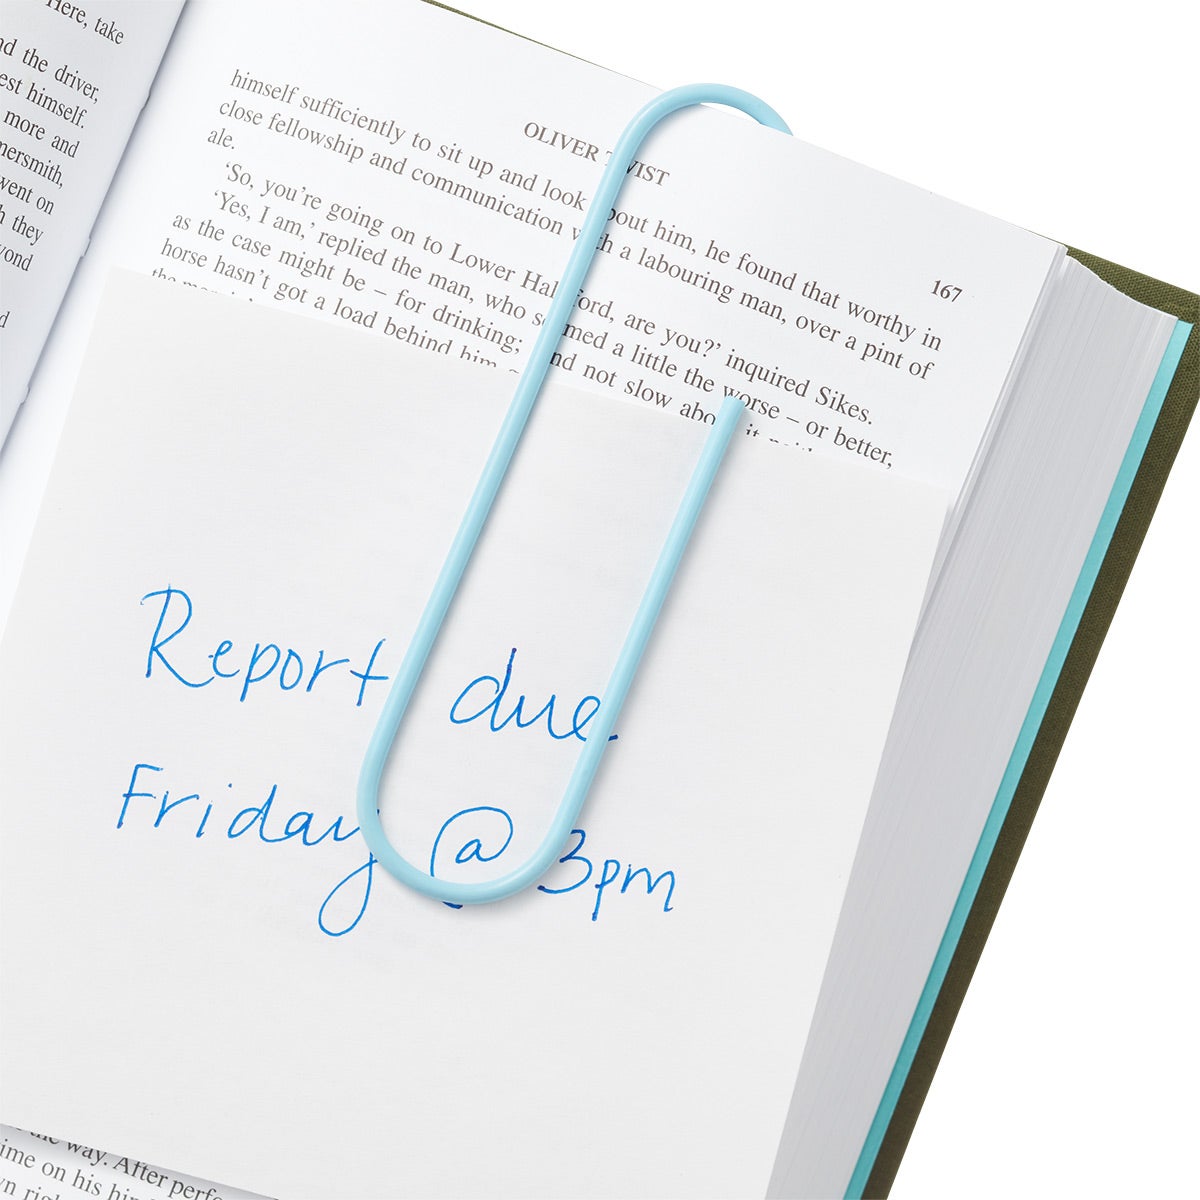 Here, take
the driver,
himself.
more and
went on
they
OLIVER
167
himself sufficiently to sit up and look him, he found that worthy in
close fellowship and communication a labouring man, over a pint of
ale.
‘So, you’re going on to Lower are you?’ inquired Sikes.
‘Yes, I am,’ replied the man, who a little the worse – or better,
as the case might be – for drinking; not slow
horse hasn’t got a load behind him
Report due
Friday @ 3pm
the way. After
on his